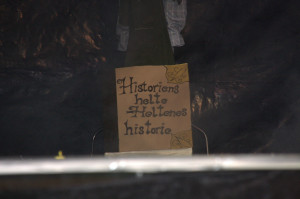 Historians
halte
Haltenes
historie